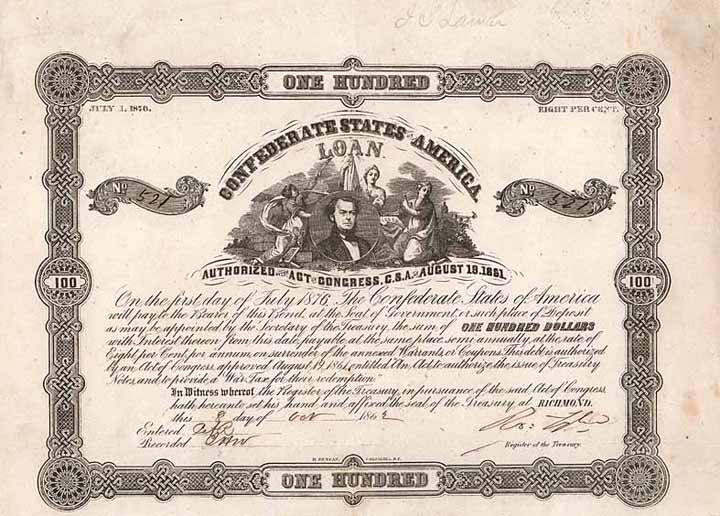 ONE HUNDRED
JULY 1, 1876.
EIGHT PER CENT.
CONFEDERATE STATES OF AMERICA
LOAN
No 521
No 521
AUTHORIZED BY THE ACT OF CONGRESS, C.S.A. OF AUGUST 19, 1861.
100
100
On the first day of July 1876, The Confederate States of America
will pay to the Bearer of this Bond, at the Seat of Government, or such place of Deposit
as may be appointed by the Secretary of the Treasury, the sum of ONE HUNDRED DOLLARS
with Interest thereon from this date, payable at the same place semi annually, at the rate of
Eight per Cent. per annum, on surrender of the annexed Warrants, or Coupons. This debt is authorized
by an Act of Congress, approved August 19, 1861, entitled An Act to authorize the issue of Treasury
Notes, and to provide a War Tax for their redemption.
In Witness whereof, the Register of the Treasury, in pursuance of the said Act of Congress,
hath hereunto set his hand and affixed the seal of the Treasury at RICHMOND,
this day of Oct 1862
Entered
Recorded
Ro: Tyler
Register of the Treasury.
ONE HUNDRED